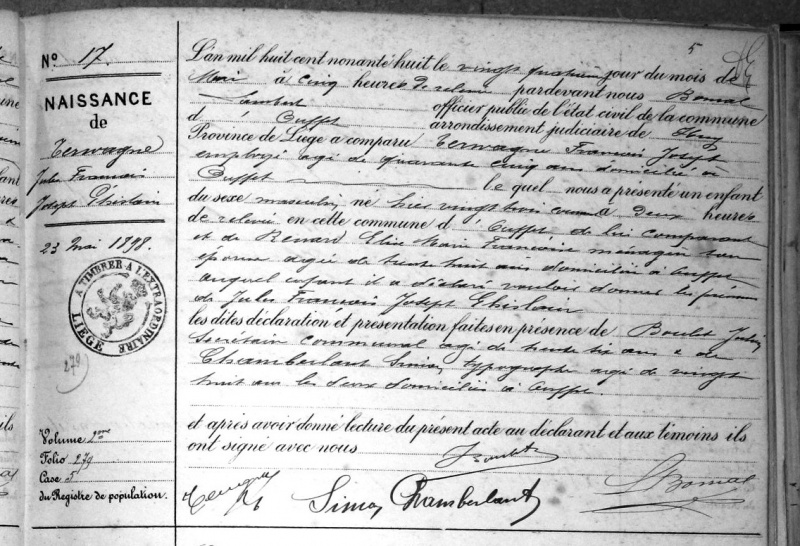 N° 17
NAISSANCE
de
Terwagne
Jules François
Joseph Ghislain
23 Mai 1898.
A TIMBRER A L'EXTRAORDINAIRE
LIEGE
279
Volume 2eme
Folio 279
Case 5
du Registre de population.
5
L'an mil huit cent nonante huit le vingt quatrième jour du mois de
Mai à cinq heures de relevée pardevant nous Bomal
Lambert officier public de l'état civil de la commune
d' Ouffet arrondissement judiciaire de Huy
Province de Liège a comparu Terwagne François Joseph
employé agé de quarante cinq ans domicilié à
Ouffet le quel nous a présenté un enfant
du sexe masculin né hier vingt trois courant à deux heures
de relevée en cette commune d' Ouffet de lui comparant
et de Renard Elise Marie Françoise ménagère son
épouse agée de trente huit ans domiciliée à Ouffet
auquel enfant il a déclaré vouloir donner les prénoms
de Jules François Joseph Ghislain
les dites déclaration et présentation faites en présence de Boulet
Secrétaire communal agé de trente six ans & de
Chamberlant Simon typographe agé de vingt
huit ans les deux domiciliés à Ouffet.
et après avoir donné lecture du présent acte au déclarant et aux témoins ils
ont signé avec nous
Boulet
Terwagne
Simon Chamberlant
L Bomal